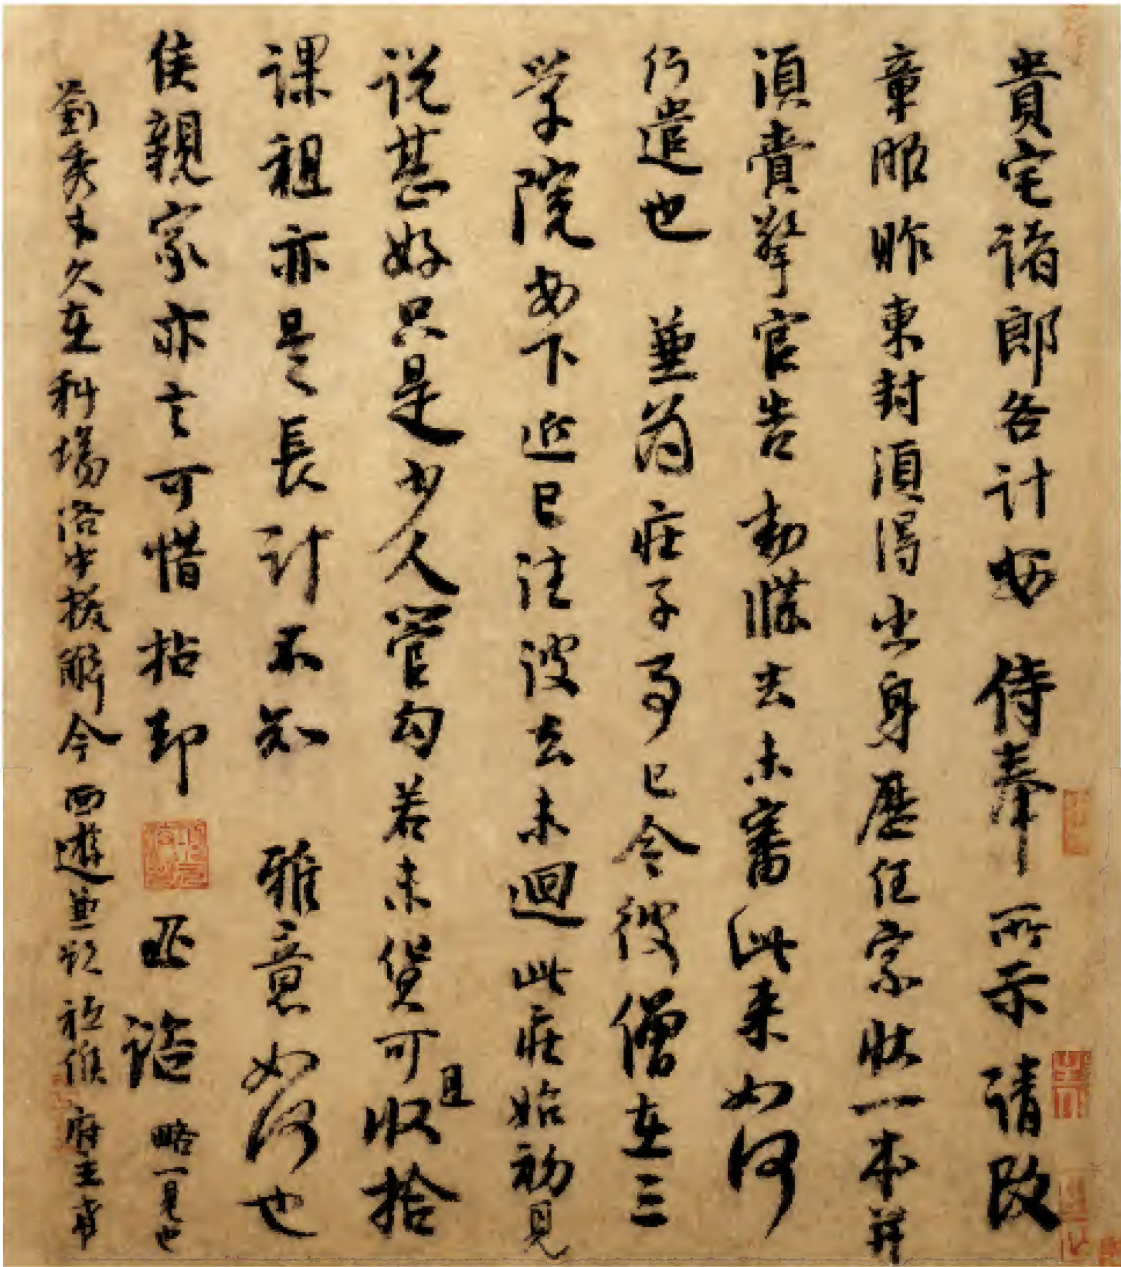 貴宅诸郎各计安 侍奉 所示 请改
章服昨東封湏得出身歷任家状一本并
湏賫擎官告 勅牒去未審此来如何
行遣也 兼为莊子事已令彼僧在三
学院安下近已往彼去未迴此莊始初見
说甚好只是少人管勾若未貨可且收拾
課租亦是長计不知 雅意如何也
侯親家亦言可惜拈却 略一見也
劉秀才久在科場洛中拔解今西遊兼欲 祗候 府主